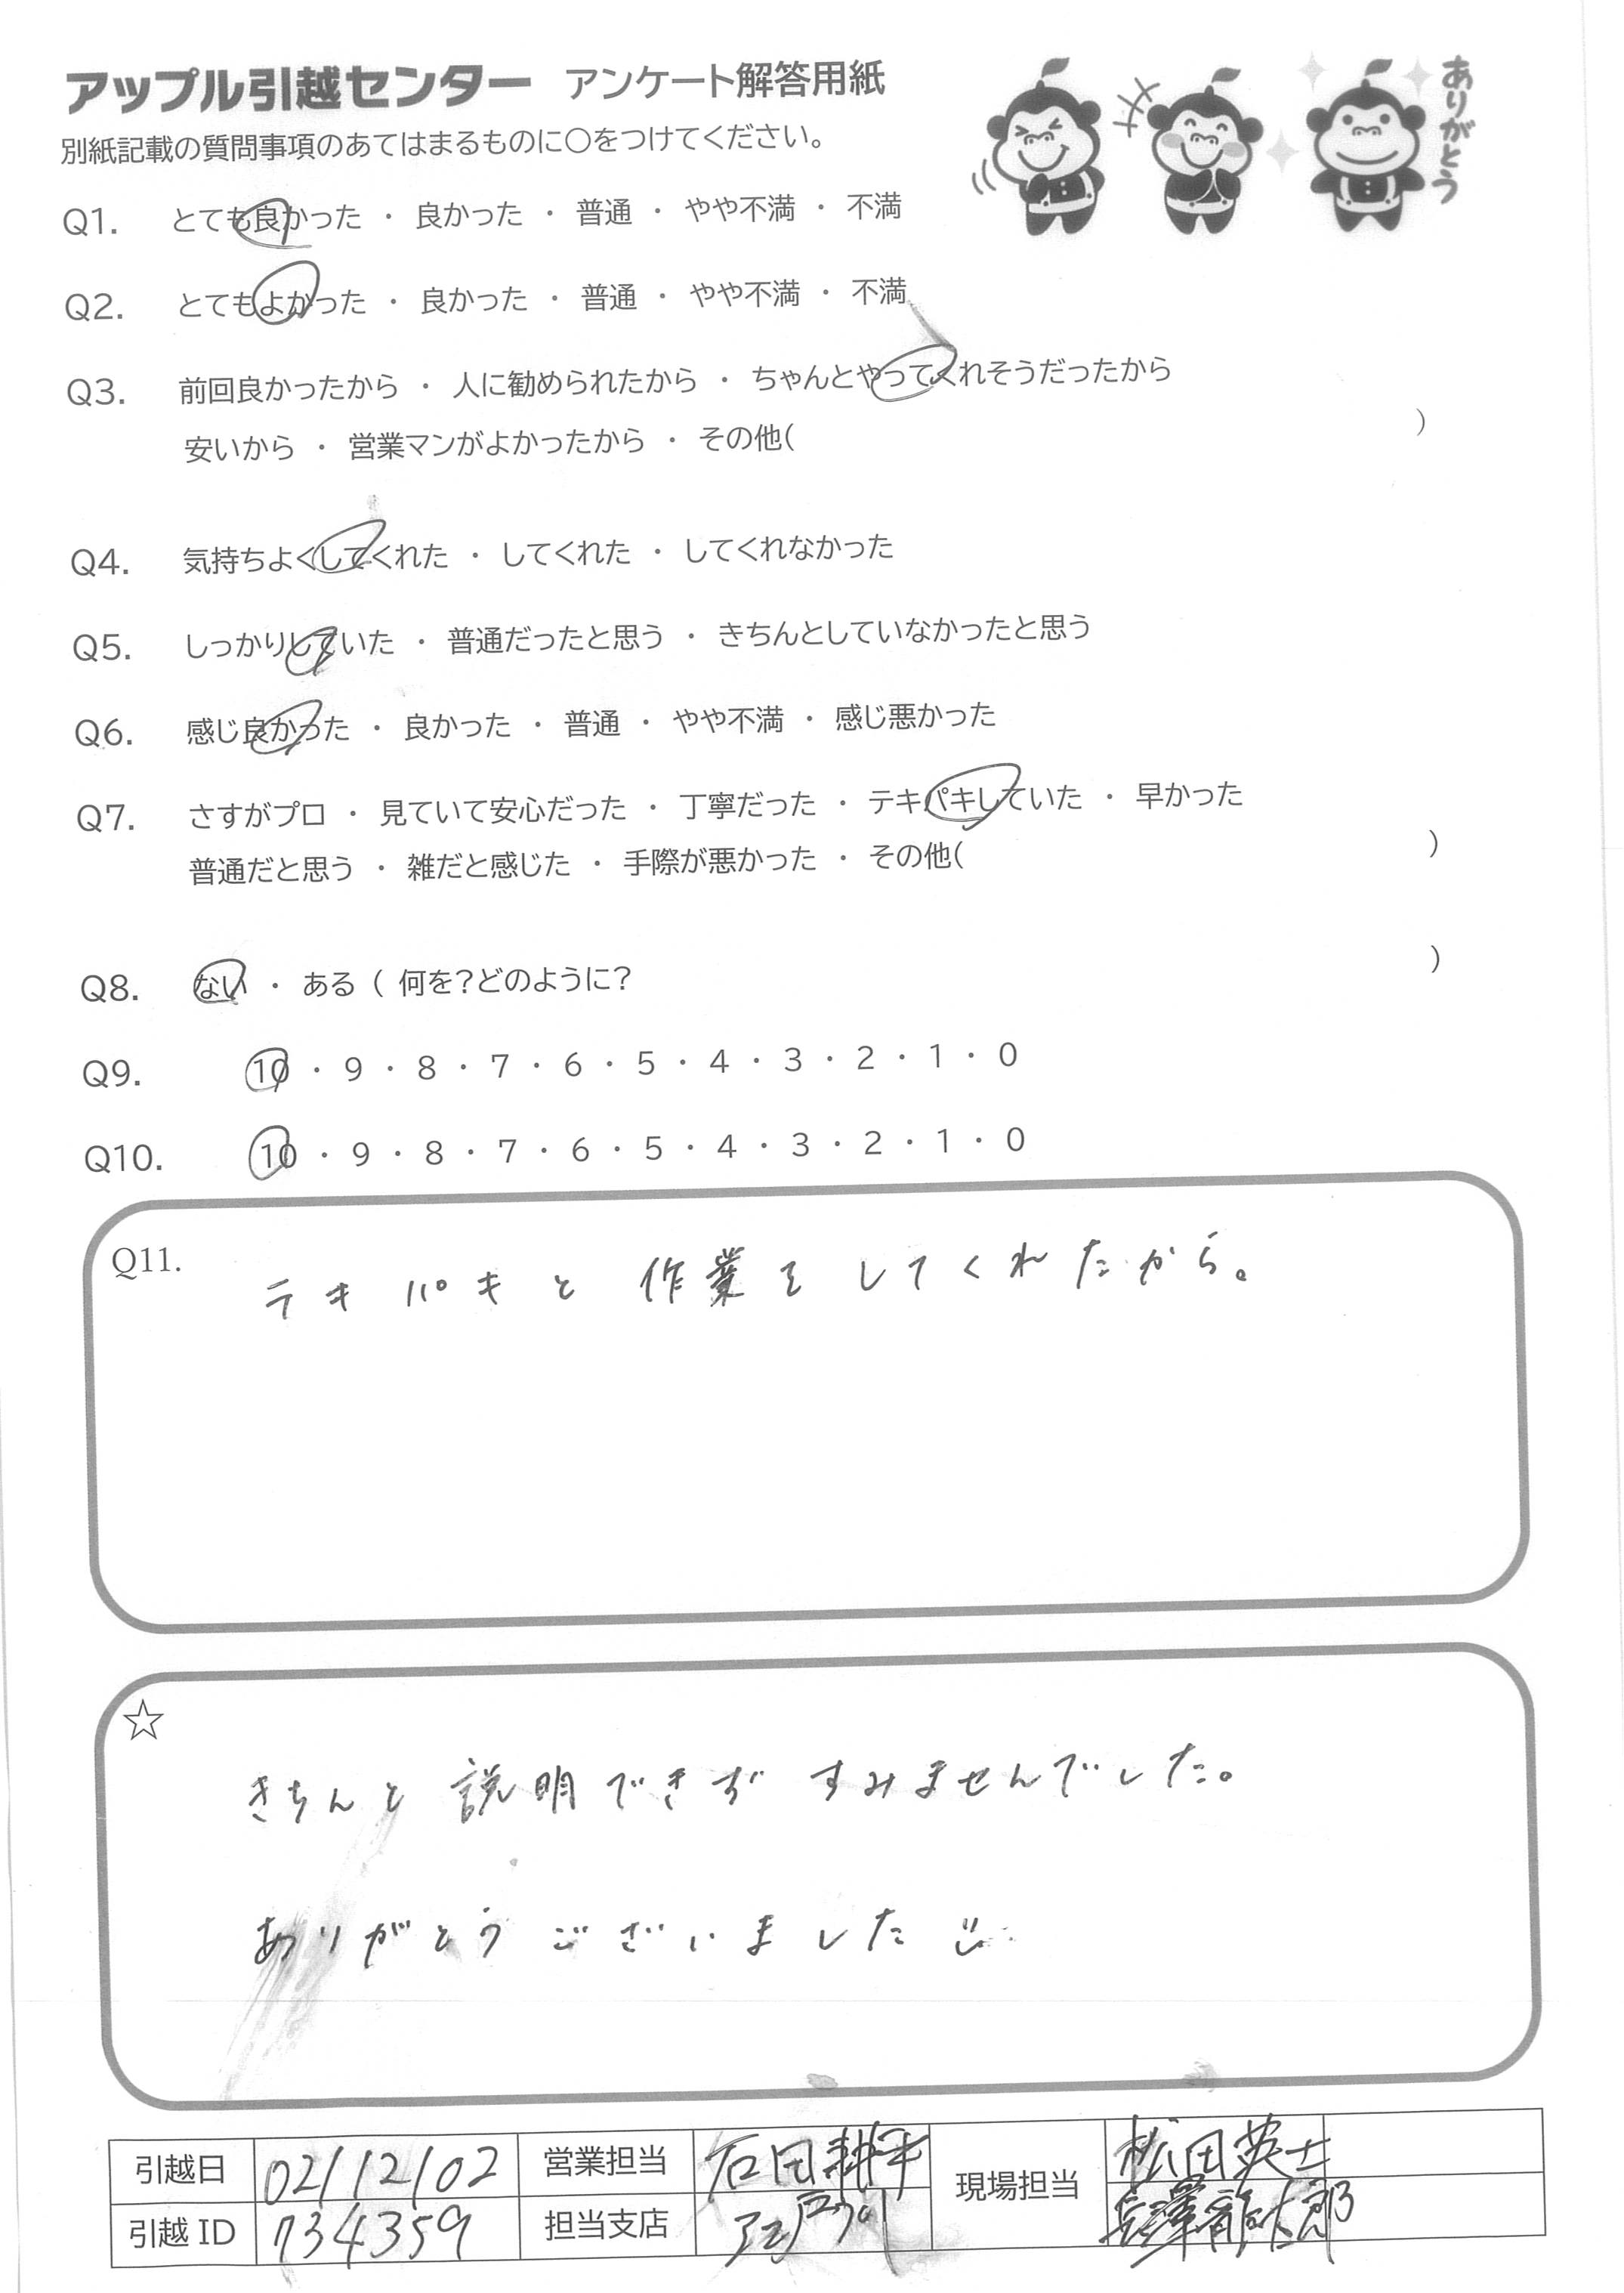 アップル引越センター アンケート解答用紙
ありがとう
別紙記載の質問事項のあてはまるものに○をつけてください。
Q1. とても良かった ・ 良かった ・ 普通 ・ やや不満 ・ 不満
Q2. とてもよかった ・ 良かった ・ 普通 ・ やや不満 ・ 不満
Q3. 前回良かったから ・ 人に勧められたから ・ ちゃんとやってくれそうだったから
安いから ・ 営業マンがよかったから ・ その他( )
Q4. 気持ちよくしてくれた ・ してくれた ・ してくれなかった
Q5. しっかりしていた ・ 普通だったと思う ・ きちんとしていなかったと思う
Q6. 感じ良かった ・ 良かった ・ 普通 ・ やや不満 ・ 感じ悪かった
Q7. さすがプロ ・ 見ていて安心だった ・ 丁寧だった ・ テキパキしていた ・ 早かった
普通だと思う ・ 雑だと感じた ・ 手際が悪かった ・ その他( )
Q8. ない ・ ある ( 何を?どのように? )
Q9. 10 ・ 9 ・ 8 ・ 7 ・ 6 ・ 5 ・ 4 ・ 3 ・ 2 ・ 1 ・ 0
Q10. 10 ・ 9 ・ 8 ・ 7 ・ 6 ・ 5 ・ 4 ・ 3 ・ 2 ・ 1 ・ 0
Q11. テキパキと 作業を してくれたから。
☆
きちんと 説明できず すみませんでした。
ありがとう ございました
引越日 02/12/02 営業担当 石田耕平 現場担当 松田英士
引越 ID 734359 担当支店